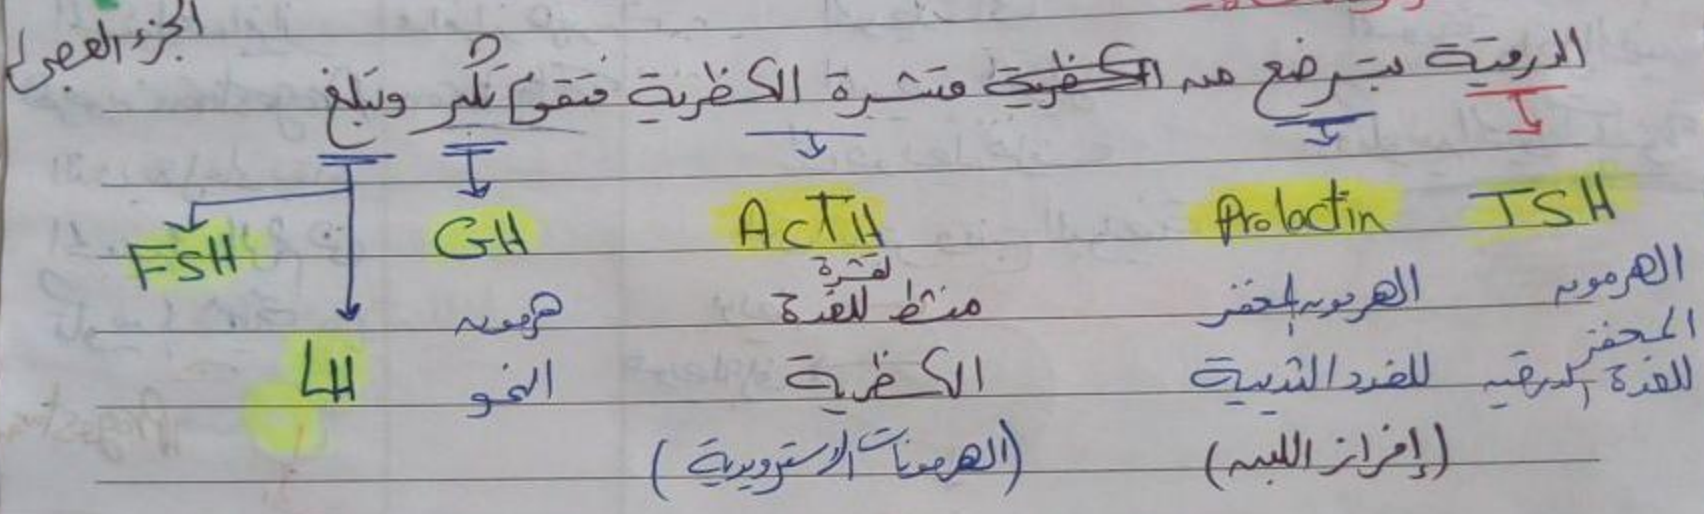 الجزء
الدرقية بترضع من الكظرية قشرة الكظرية فتقوم تكبر وتبلغ
TSH Prolactin ACTH GH FSH
الهرمون المحفز للغدة الدرقية
الهرمون المحفز للغدد الثديية
(إفراز اللبن)
منشط لقشرة للغدة الكظرية
(الهرمونات الاسترويدية)
هرمون النمو
LH